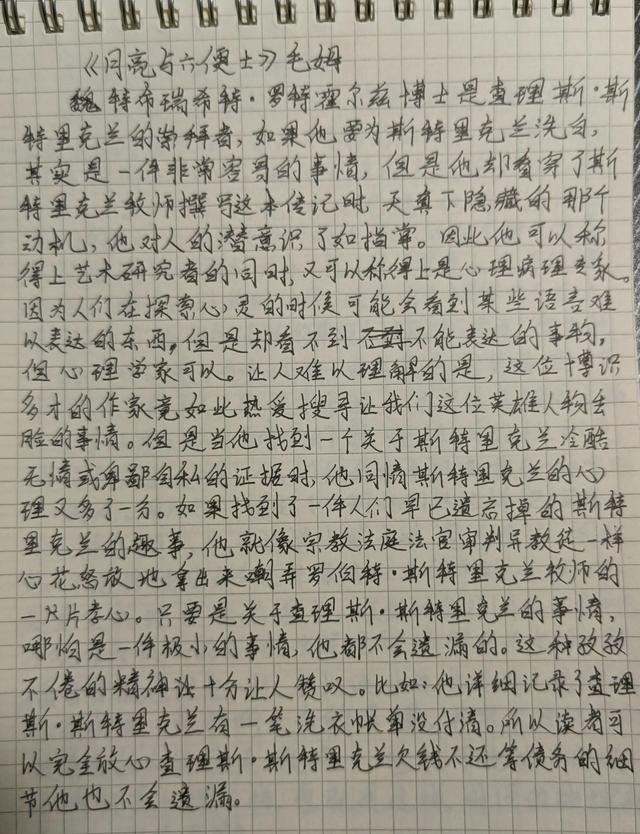 《月亮与六便士》毛姆
魏特希瑞希特·罗特霍尔兹博士是查理斯·斯
特里克兰的崇拜者，如果他要为斯特里克兰洗白，
其实是一件非常容易的事情，但是他却看穿了斯
特里克兰牧师撰写这本传记时，天真下隐藏的那个
动机，他对人的潜意识了如指掌。因此他可以称
得上艺术研究者的同时，又可以称得上是心理病理专家。
因为人们在探索心灵的时候可能会看到某些语言难
以表达的东西，但是却看不到不能表达的事物，
但心理学家可以。让人难以理解的是，这位博识
多才的作家竟如此热爱搜寻让我们这位英雄人物丢
脸的事情。但是当他找到一个关于斯特里克兰冷酷
无情或卑鄙自私的证据时，他同情斯特里克兰的心
理又多了一分。如果找到了一件人们早已遗忘掉的斯特
里克兰的趣事，他就像宗教法庭法官审判异教徒一样
心花怒放地拿出来嘲弄罗伯特·斯特里克兰牧师的
一片片孝心。只要是关于查理斯·斯特里克兰的事情，
哪怕是一件极小的事情，他都不会遗漏的。这种孜孜
不倦的精神让十分让人赞叹。比如：他详细记录了查理
斯·斯特里克兰有一笔洗衣帐单没付清。所以读者可
以完全放心查理斯·斯特里克兰欠钱不还等债务的细
节他也不会遗漏。